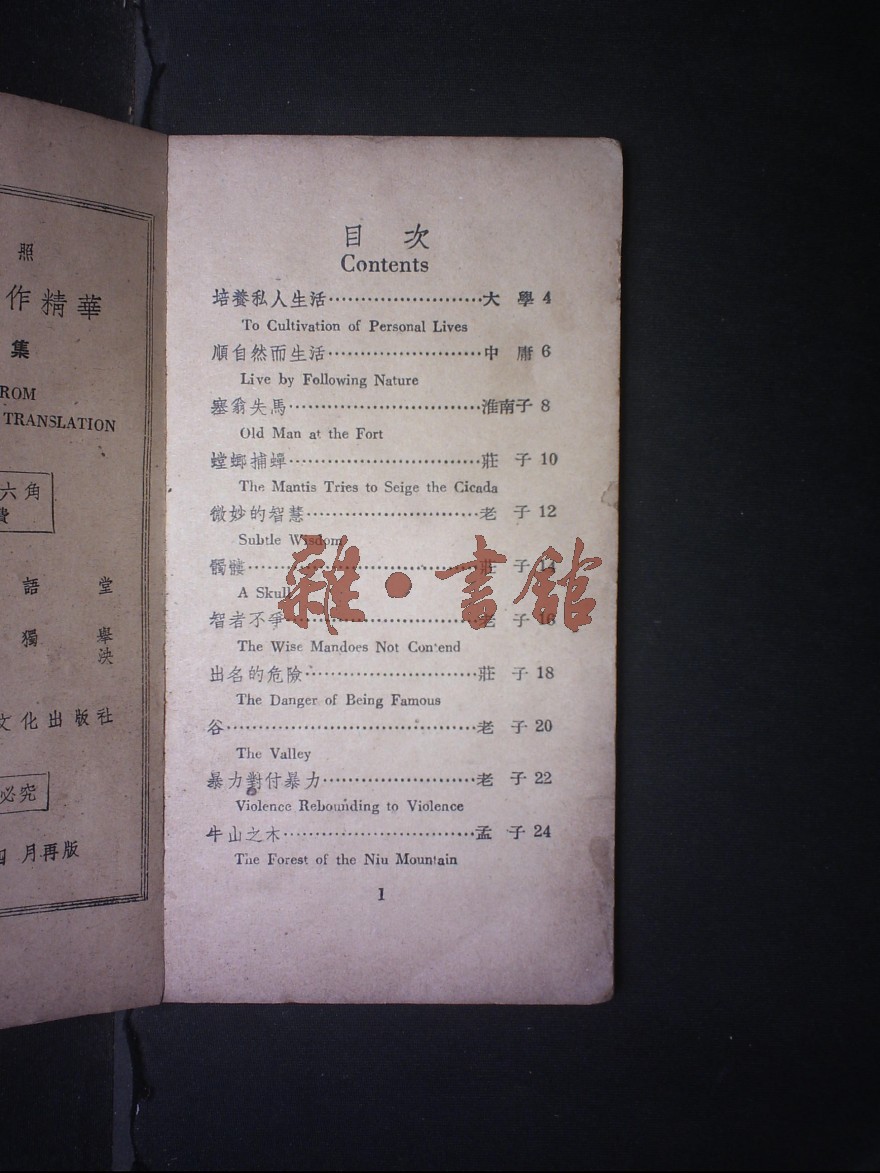 照
作精華
集
ROM
TRANSLATION
六角
費
語堂
獨舉
決
文化出版社
必究
月再版
目 次
Contents
培養私人生活························大 學 4
To Cultivation of Personal Lives
順自然而生活························中 庸 6
Live by Following Nature
塞翁失馬······························淮南子 8
Old Man at the Fort
螳螂捕蟬······························莊 子 10
The Mantis Tries to Seige the Cicada
微妙的智慧···························老 子 12
Subtle Wisdom
髑髏····································莊 子 14
A Skull
智者不爭······························老 子 16
The Wise Mandoes Not Contend
出名的危險···························莊 子 18
The Danger of Being Famous
谷·······································老 子 20
The Valley
暴力對付暴力························老 子 22
Violence Rebounding to Violence
牛山之木······························孟 子 24
The Forest of the Niu Mountain
1
雜·書館